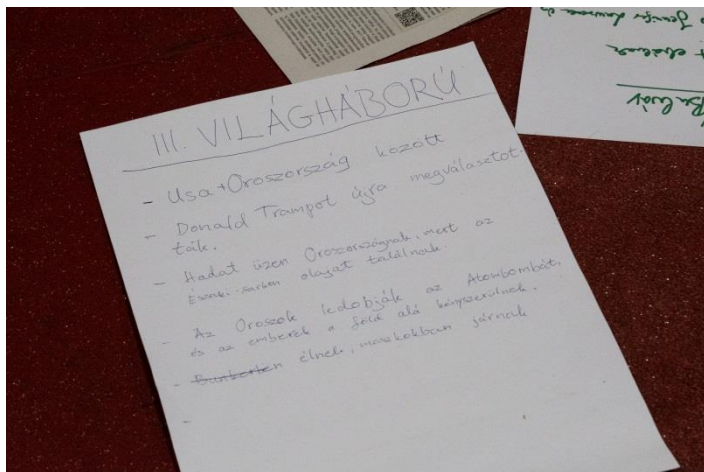 III. VILÁGHÁBORÚ
- Usa + Oroszország között
- Donald Trampot újra megválasztot-
ták.
- Hadat üzen Oroszországnak, mert az
Északi-sarkon olajat találnak.
- Az Oroszok ledobják az Atombombát,
és az emberek a föld alá kényszerülnek.
- Bunkerben élnek, maszkokban járnak
-